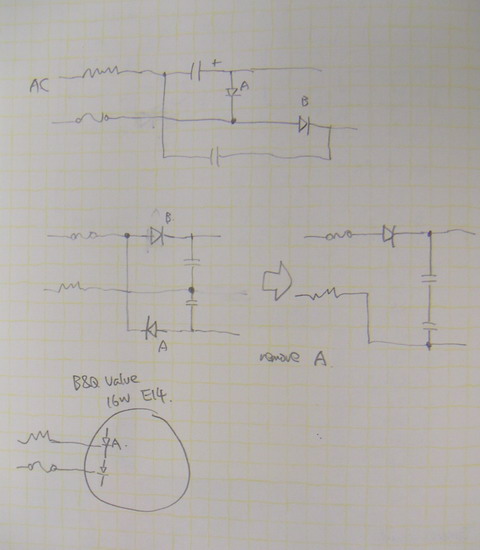 +
AC
A
B
B
A
remove A
B&Q Value
16W E14.
A.